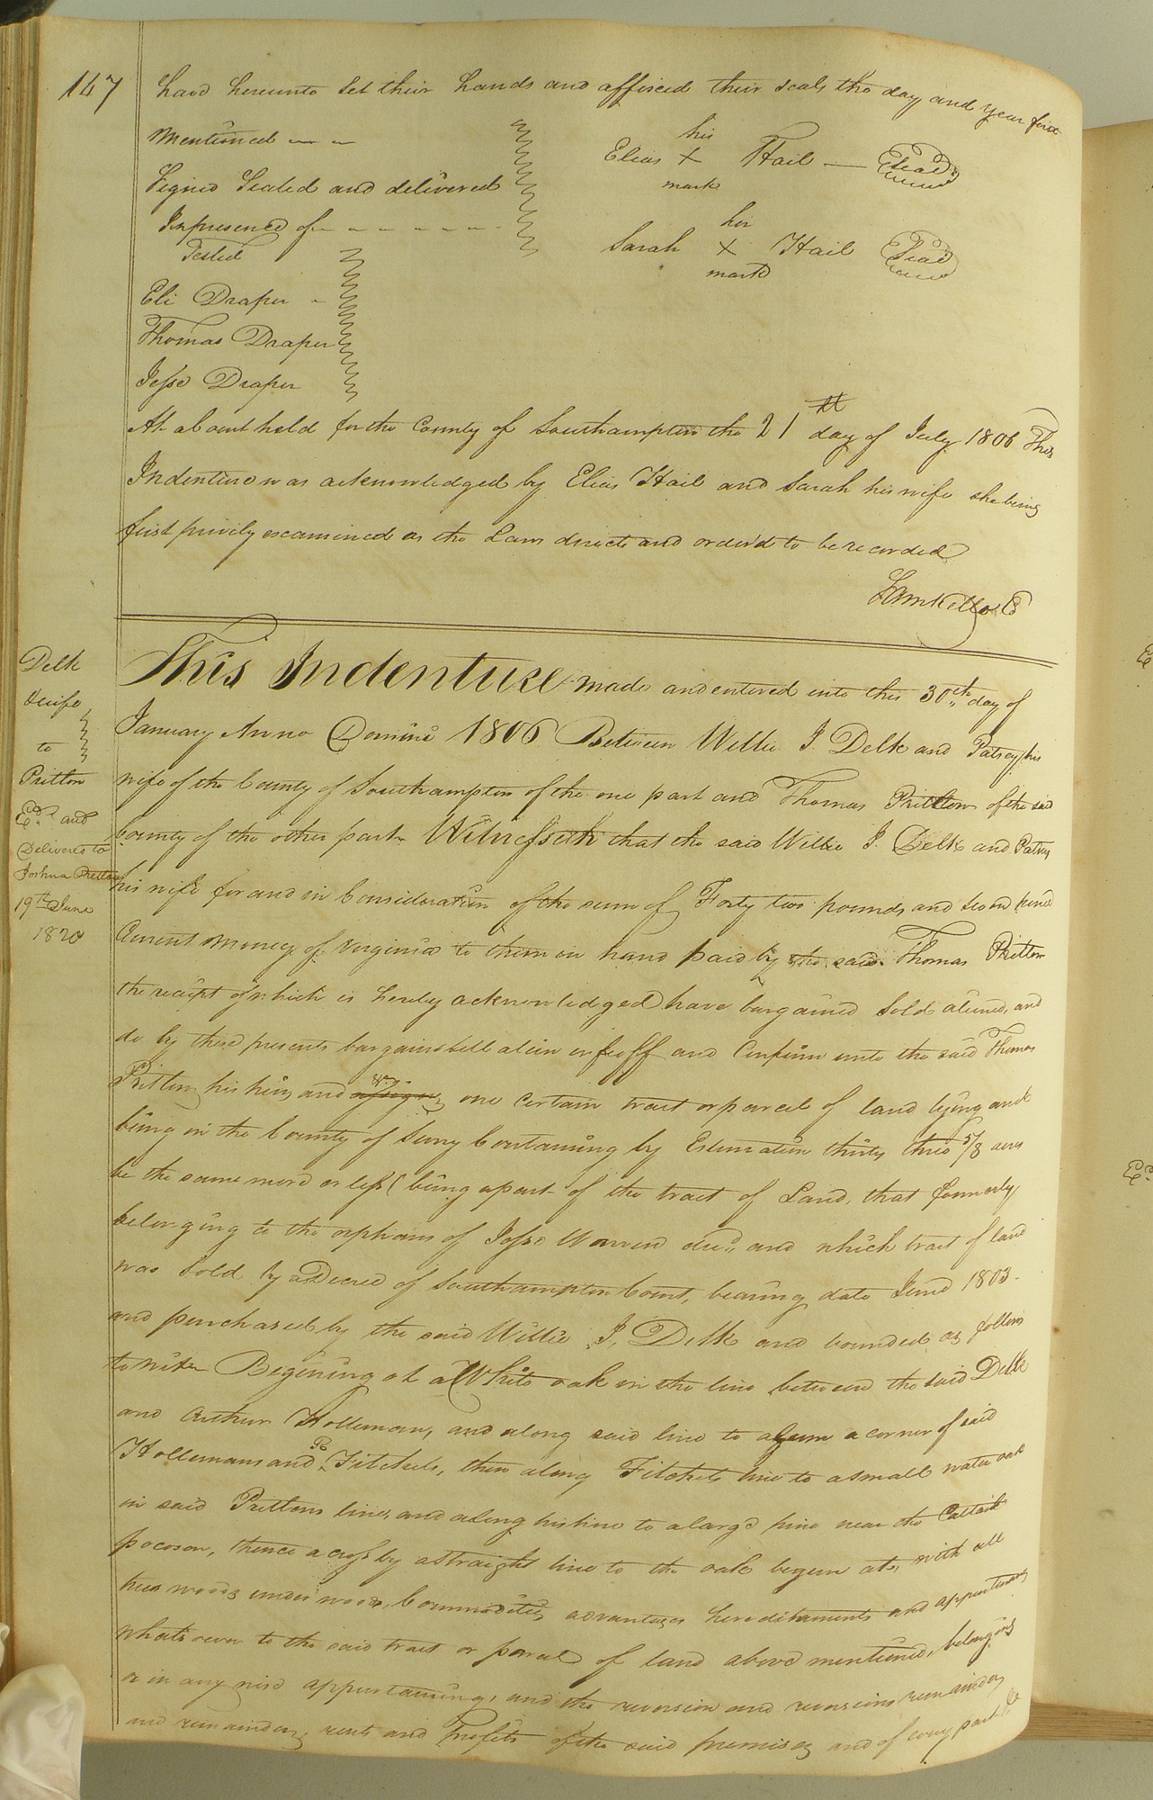 147
have hereunto set their hands and affixed their seals the day and year first
mentioned
Signed Sealed and delivered
In presence of
Tested
Eli Draper
Thomas Draper
Jesse Draper
his
Elias + Hail Seal
mark
her
Sarah + Hail Seal
mark
At a Court held for the County of Southampton the 21st day of July 1806 This
Indenture was acknowledged by Elias Hail and Sarah his wife she being
first privily examined as the Law directs and orderd to be recorded
Delk
& wife
to
Pretlow
Exd. and
Delivered to
Joshua Pretlow
19th June
1820
This Indenture made and entered into this 30th day of
January Anno Domini 1806 Between Willie J. Delk and Patsey his
wife of the County of Southampton of the one part and Thomas Pretlow of the said
County of the other part Witnesseth that the said Willie J. Delk and Patsey
his wife for and in Consideration of the sum of Forty two pounds and seven pence
Current money of Virginia to them in hand paid by the said Thomas Pretlow
the receipt of which is hereby acknowledged have bargained Sold aliened, and
do by these presents bargain sell alien enfeoff and Confirm unto the said Thomas
Pretlow his heirs and assigns one certain tract or parcel of land lying and
being in the County of Surry Containing by Estimation thirty three 5/8 acres
be the same more or less (being a part of the tract of Land, that formerly
belonging to the orphans of Jesse Warren decd. and which tract of land
was Sold by a Decree of Southampton Court, bearing date June 1803
and purchased by the said Willie J. Delk and bounded as follows
to wit Begining at a White oak in the line between the said Delk
and Arthur Holleman, and along said line to a gum a corner of said
Hollemans and Fitchets, then along Fitchets line to a small water oak
in said Pretlows line, and along his line to a large pine near the Cattail
pocoson, thence across by a straight line to the oak begun at, with all
trees woods under woods, Commodities, advantages hereditaments and appurtenances
whatsoever to the said tract or parcel of land above mentioned, belonging
or in any wise appurtaining, and the reversion and reversions remainder
and remainders, rents and Profits of the said premises and of every part &c